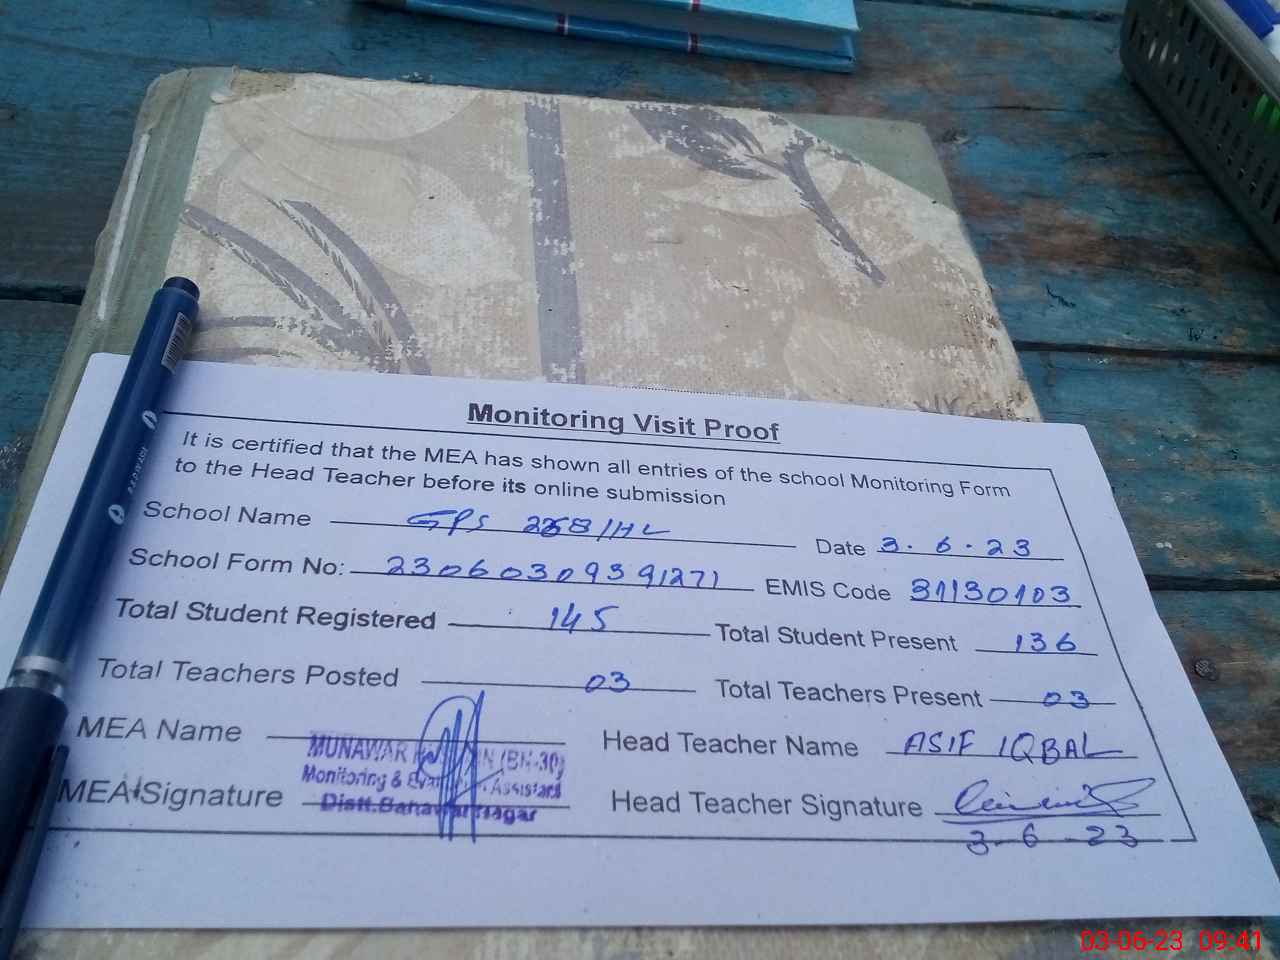 Monitoring Visit Proof
It is certified that the MEA has shown all entries of the school Monitoring Form
to the Head Teacher before its online submission
School Name GPS 268/HL Date 3.6.23
School Form No: 23060309391271 EMIS Code 31130103
Total Student Registered 145 Total Student Present 136
Total Teachers Posted 03 Total Teachers Present 03
MEA Name MUNAWAR (BN-30) Head Teacher Name ASIF IQBAL
Monitoring & Assistant
MEA Signature Distt. Bahawal Nagar Head Teacher Signature
3-6-23
03-06-23 09:41